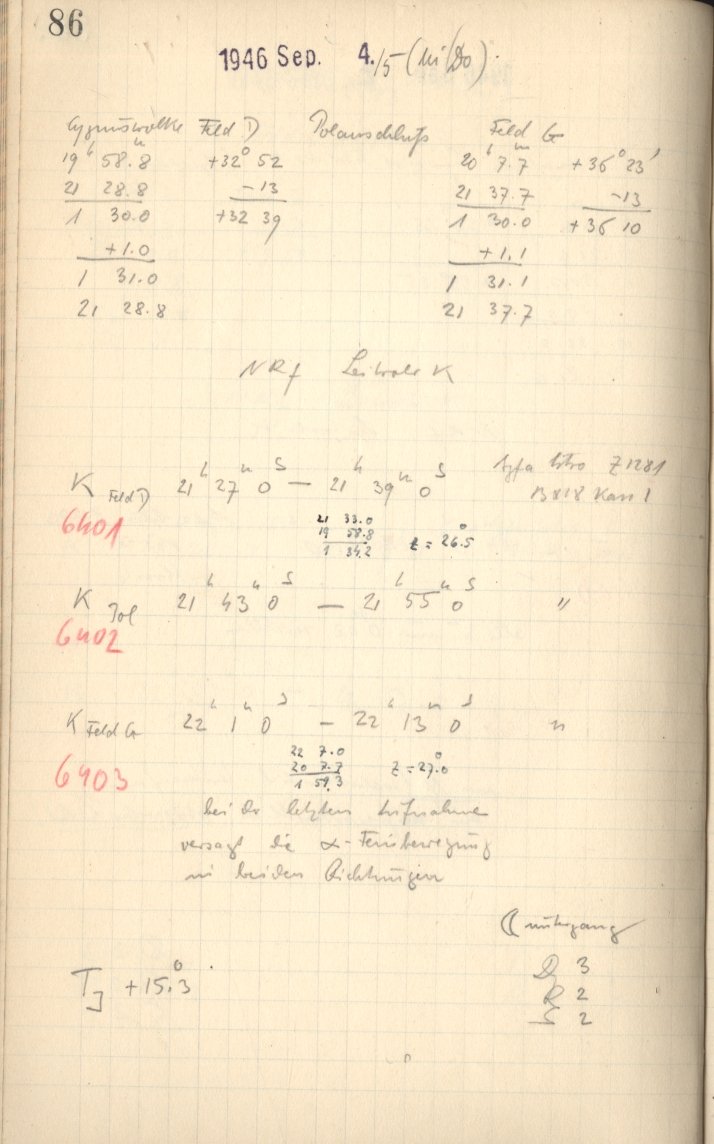 86
1946 Sep. 4./5 (Mi/Do).
Cygnuswolke Feld D Polanschluß Feld G
19ʰ 58.8ᵐ +32° 52 20ʰ 7.7ᵐ +36° 23'
21 28.8 -13 21 37.7 -13
1 30.0 +32 39 1 30.0 +36 10
+1.0 +1.1
1 31.0 1 31.1
21 28.8 21 37.7
NRf K
K Feld D 21ʰ 27ᵐ 0ˢ — 21ʰ 39ᵐ 0ˢ Agfa Z1281
6401 B818 Kass 1
21 33.0
19 58.8
1 34.2 z = 26.5°
K Pol 21ʰ 43ᵐ 0ˢ — 21ʰ 55ᵐ 0ˢ "
6402
K Feld G 22ʰ 1ᵐ 0ˢ — 22ʰ 13ᵐ 0ˢ "
6403
22 7.0
20 7.7
1 59.3 z = 27.0°
bei der letzten Aufnahme
versagt die α-Feinbewegung
in beiden Richtungen
☾ untergang
D 3
T_J +15.3° R 2
S 2